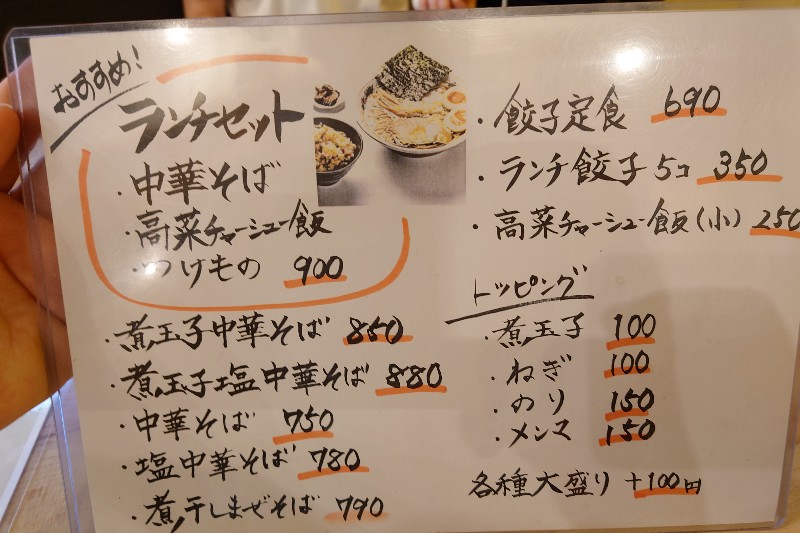 おすすめ!
ランチセット
・中華そば
・高菜チャーシュー飯
・つけもの 900
・煮玉子中華そば 850
・煮玉子塩中華そば 880
・中華そば 750
・塩中華そば 780
・煮干しまぜそば 790
・餃子定食 690
・ランチ餃子5コ 350
・高菜チャーシュー飯(小) 250
トッピング
・煮玉子 100
・ねぎ 100
・のり 150
・メンマ 150
各種大盛り +100円